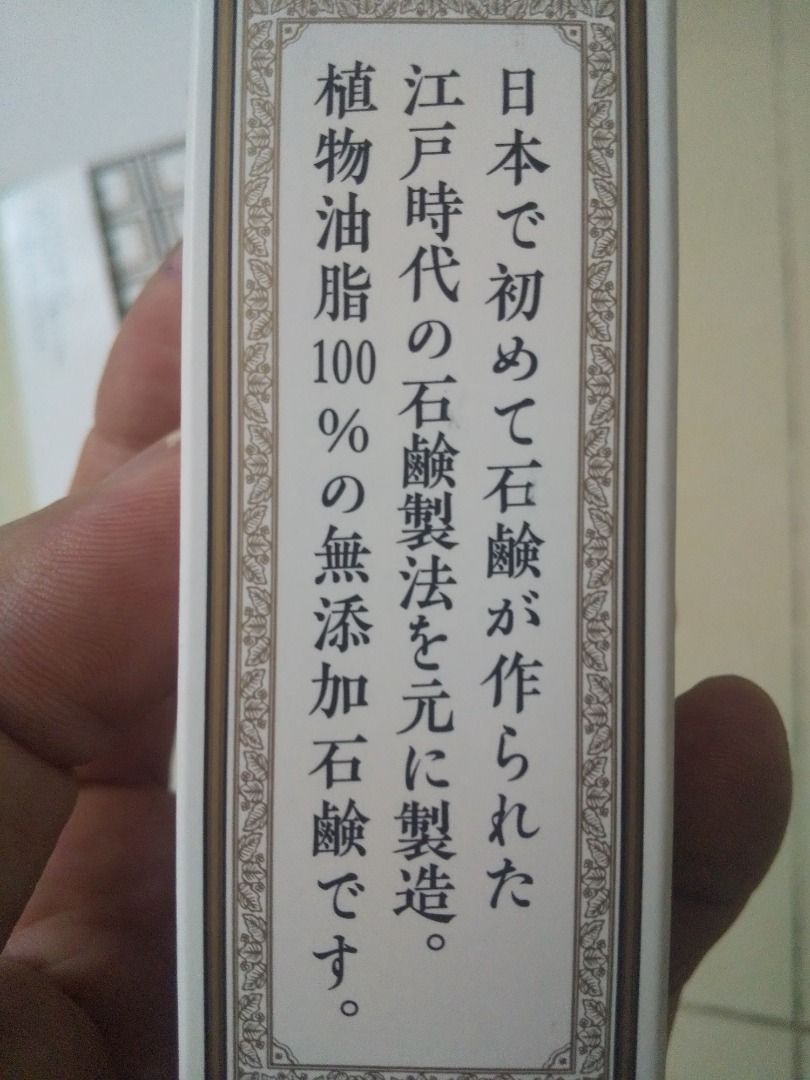 日本で初めて石鹸が作られた
江戸時代の石鹸製法を元に製造。
植物油脂100%の無添加石鹸です。